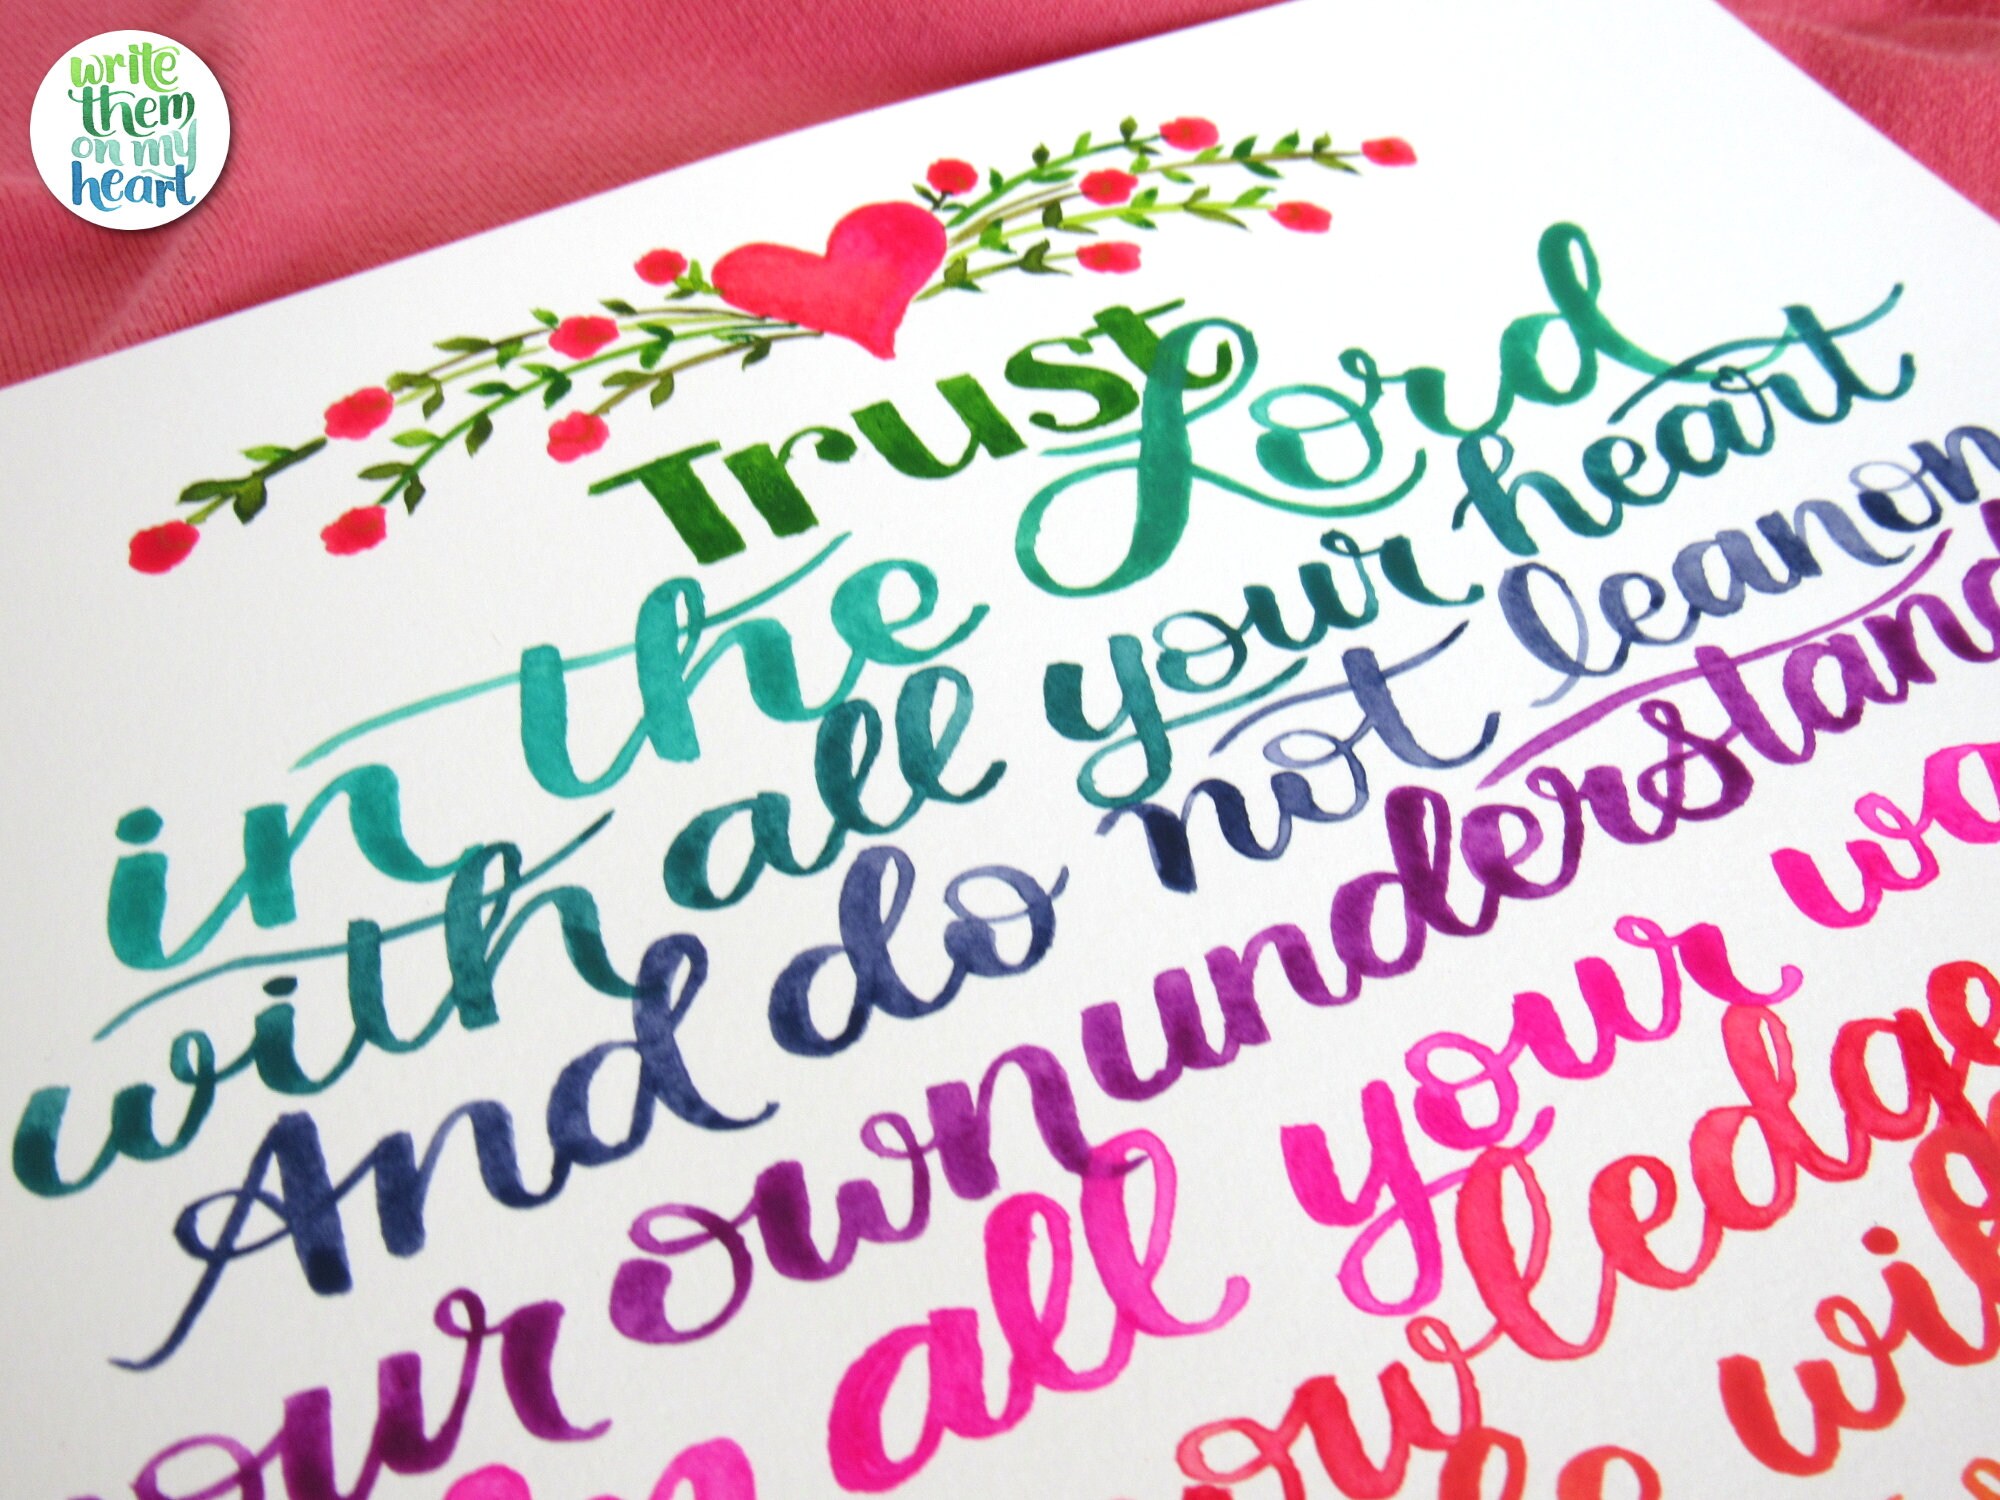 write
them
on my
heart
Trust
in the Lord
with all your heart
And do not lean on
our own understand
all your wa
owledge
will